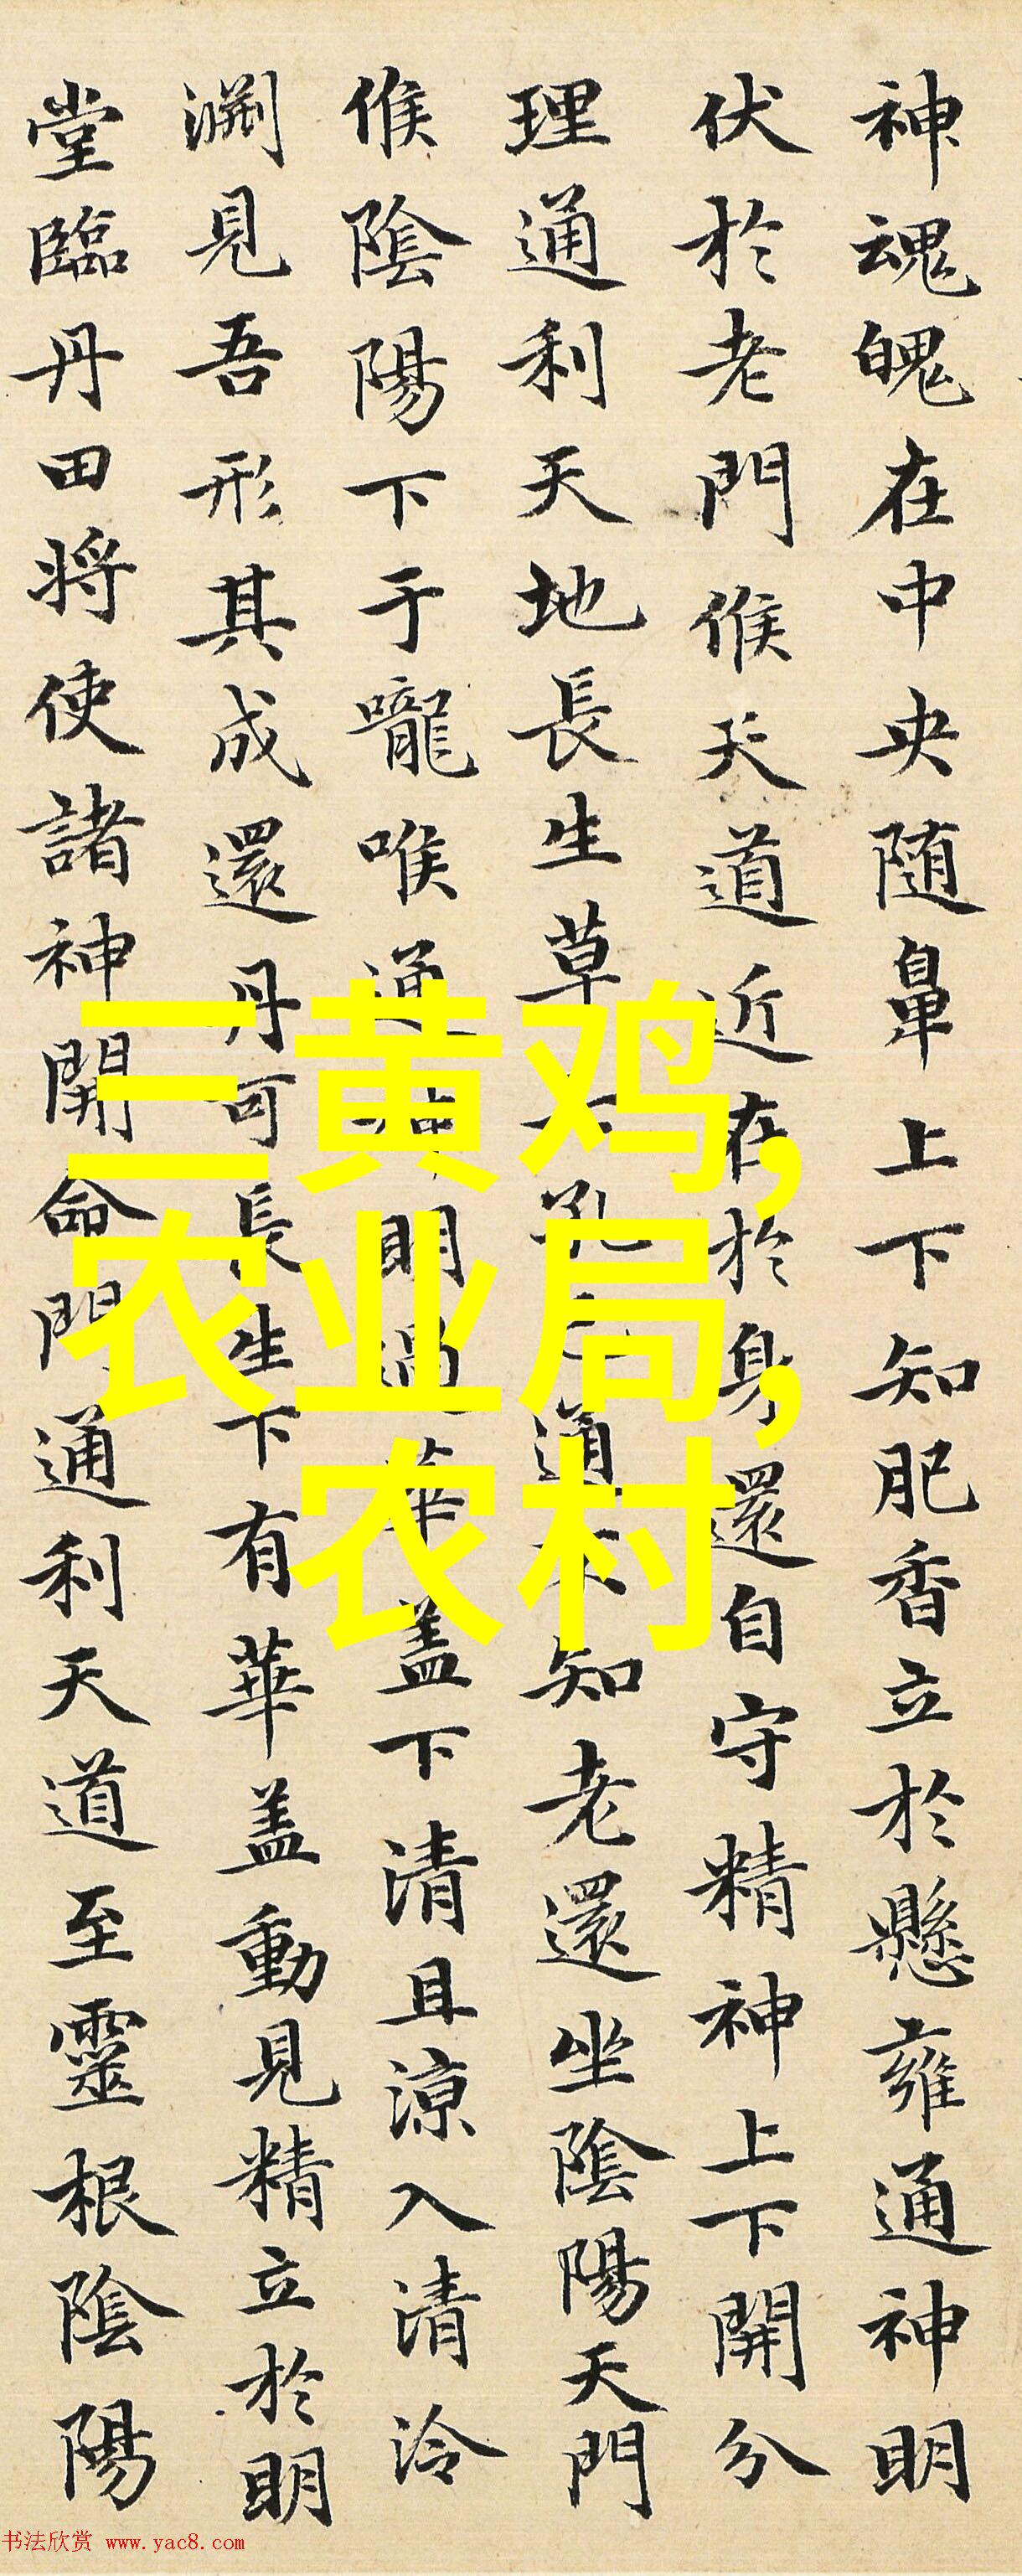 神魂魄在中央随鼻上下知肥香立於懸雍通神明
伏於老門候天道近在於身還自守精神上下開分
理通利天地長生草孔通知老還坐陰陽天門
候陰陽下于嚨喉通神明過華盖下清且涼入清泠
淵見吾形其成還丹可長生下有華盖動見精立於明
堂臨丹田將使諸神開命門通利天道至靈根陰陽
三黄鸡,
农业局,
农村
书法欣赏 www.yac8.com